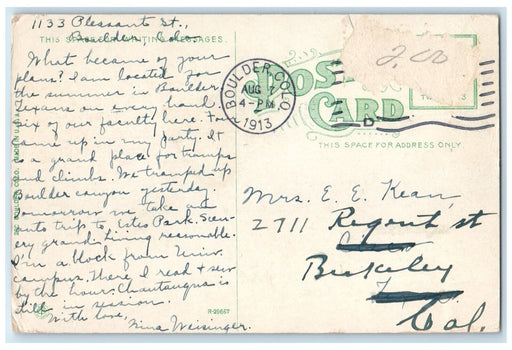 1133 Pleasant St.,
Boulder, Colo.
THIS SPACE FOR WRITING MESSAGES.
What became of your
plans? I am located for
the summer in Boulder
Texans on every hand
six of our faculty here. Four
came up in my party. It
is a grand place for tramps
and climbs. We tramped up
Boulder canyon yesterday.
Tomorrow we take an
auto trip to Estes Park. Scen-
ery grand. Living reasonable.
I'm a block from Univ.
campus. There I read & sew
by the hour. Chautauqua is
still in session.
With love,
Nina Weisinger.
R-29667
POST
CARD
THIS SPACE FOR ADDRESS ONLY
BOULDER, COLO.
AUG 7
4-PM
1913
D
2.00
Mrs. E. E. Kean,
2711 Regent st
Berkeley
Cal.